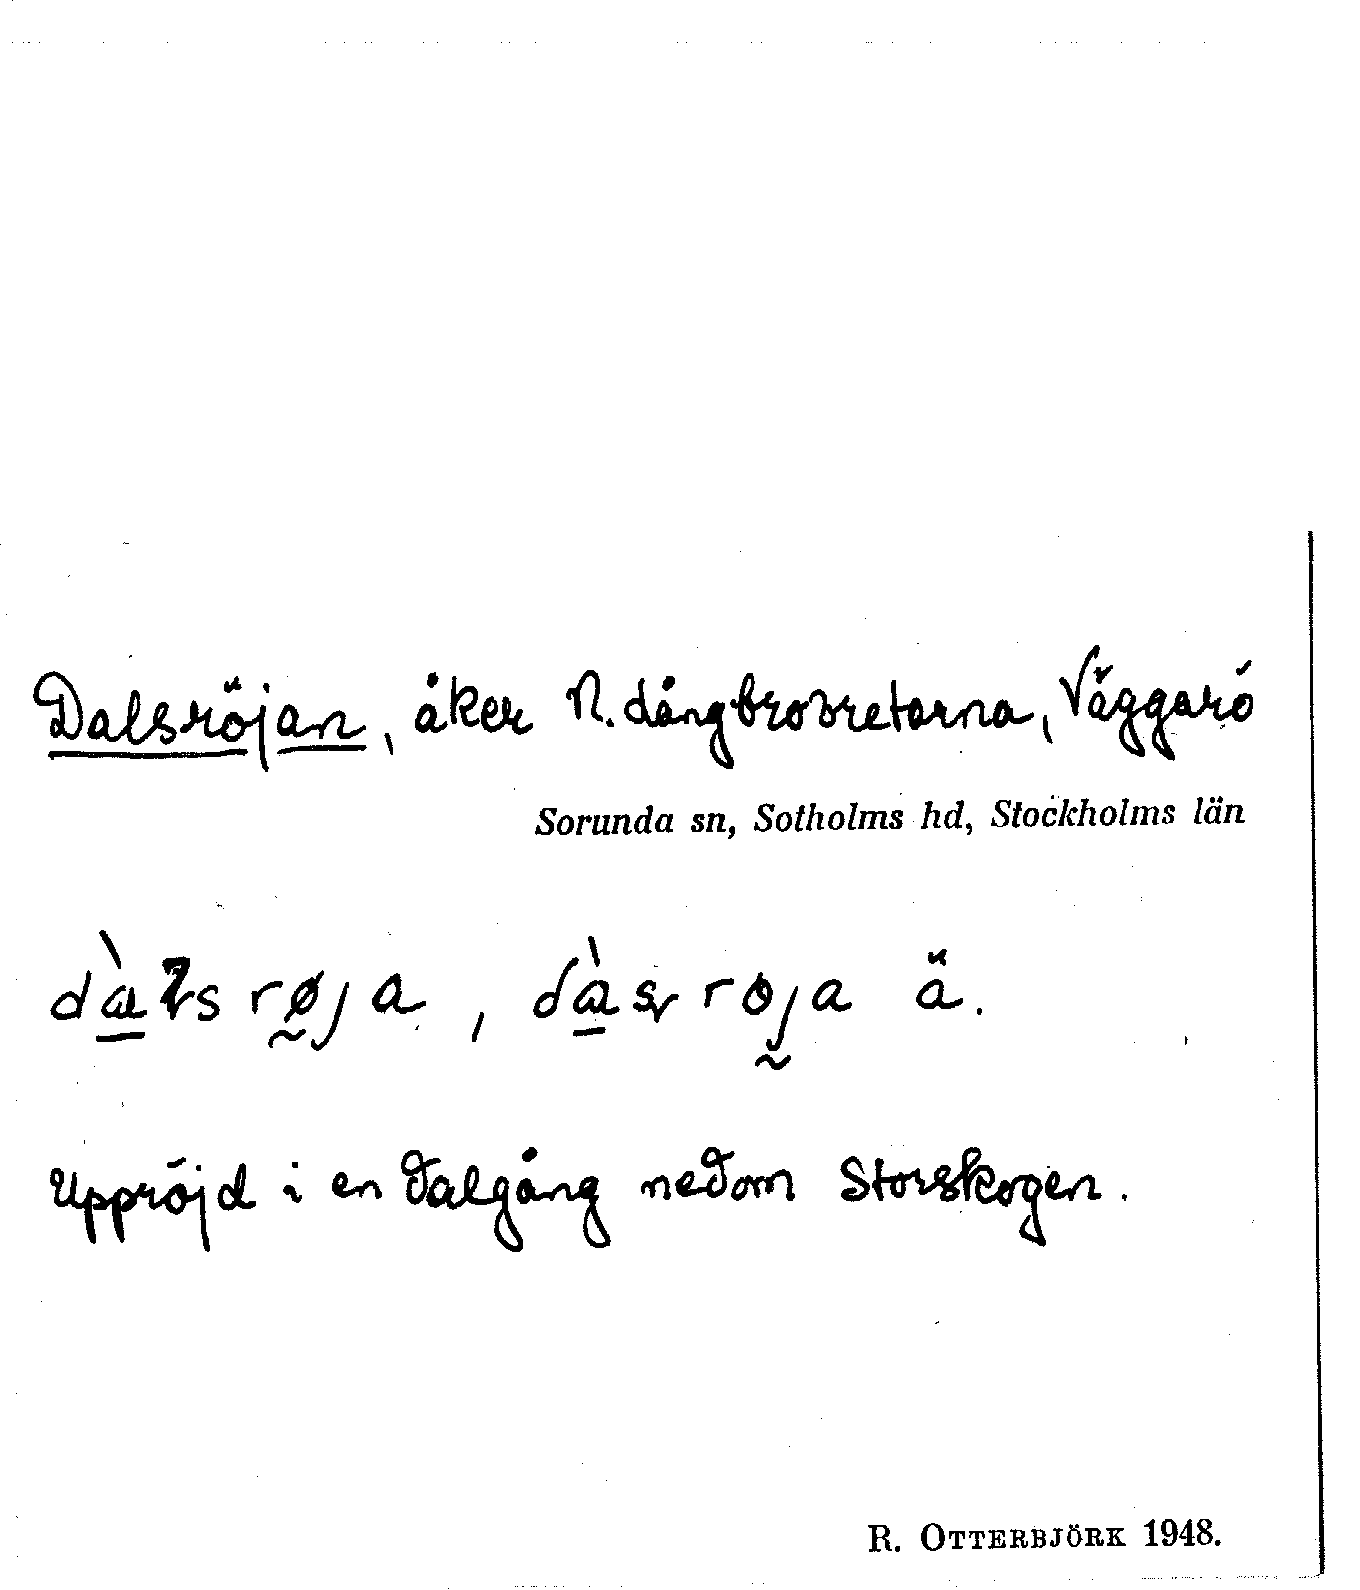 Dalsröjan, åker N. Långbrobretarna, Väggarö
Sorunda sn, Sotholms hd, Stockholms län
dàlsrøja, dàsrøja ä.
Uppröjd i en dalgång nedom Storskogen.
R. OTTERBJÖRK 1948.